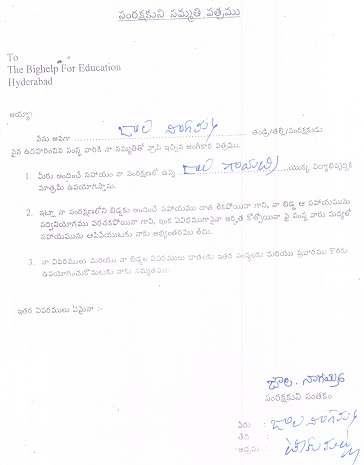 సంరక్షకుని సమ్మతి పత్రము
To
The Bighelp For Education
Hyderabad
అయ్యా!
నేను అనగా తండ్రి/తల్లి/సంరక్షకుడు
పైన ఉదహరించిన సంస్థ వారికి నా సమ్మతితో వ్రాసి ఇచ్చిన అంగీకార పత్రము.
1. మీరు అందించే సహాయం నా సంరక్షణలో ఉన్న యొక్క విద్యాభివృద్ధికి
మాత్రమే ఉపయోగిస్తాను.
2. ఇట్లా నా సంరక్షణలోని బిడ్డకు అందించే సహాయము దాత లేకపోయినా గాని, నా బిడ్డ ఆ సహాయమును
సద్వినియోగము పరచకపోయినా గాని, ఇంక ఏవిధముగానైనా అర్హత కోల్పోయినా పై సంస్థ వారు మధ్యలో
సహాయమును ఆపివేయుటకు నాకు అభ్యంతరము లేదు.
3. నా వివరములు మరియు నా బిడ్డల వివరములు దాతలకు ఇతర సంస్థలకు మరియు ప్రచారము కొరకు
ఉపయోగించుకొనుటకు నాకు సమ్మతము.
ఇతర వివరములు ఏమైనా :-
జాల. నాగయ్య
సంరక్షకుని సంతకం
పేరు :
తేది :
అడ్రసు :